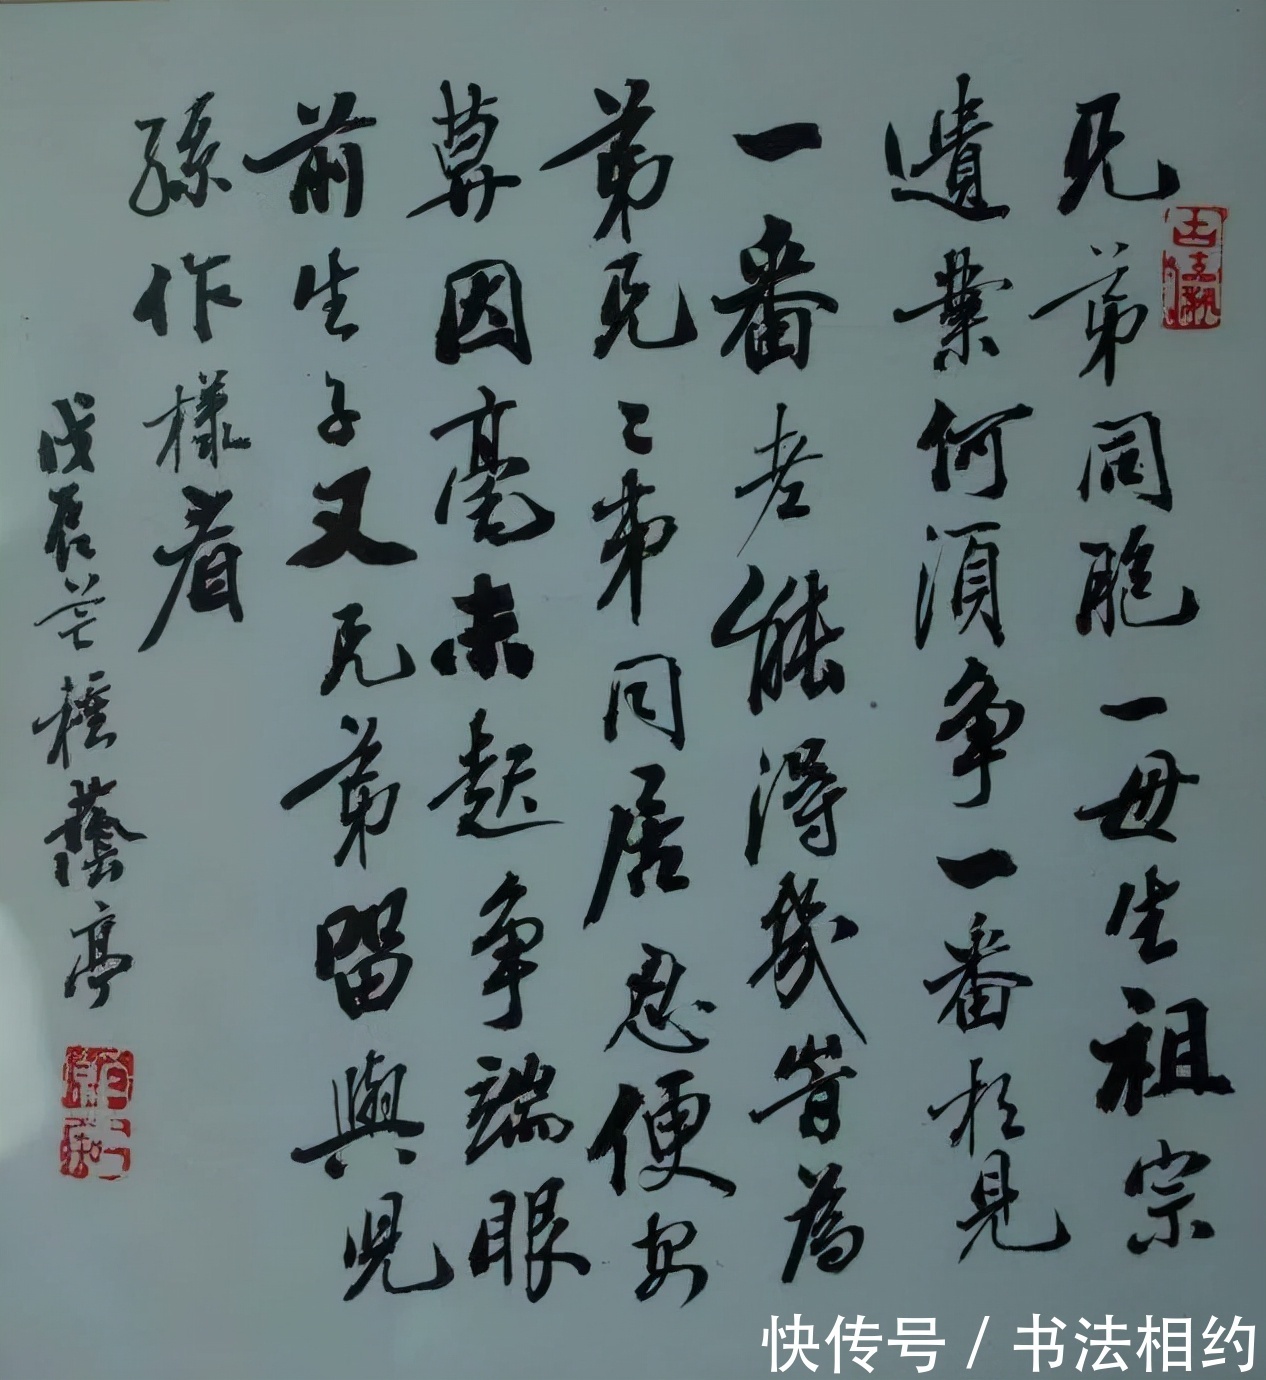 兄弟同胞一母生祖宗
遺業何須争一番相見
一番老能得幾旹為
弟兄々弟同居忍便安
莫因毫末起争端眼
前生子又兄弟留與兒
孫作樣看
戊辰芒種蔭亭
快传号 / 书法相约